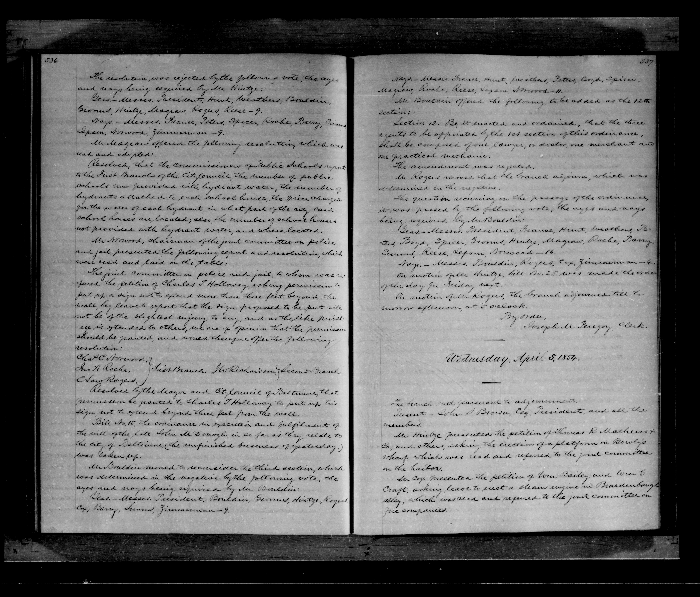 336
The resolution was rejected by the following vote, the ayes
and nays being required by Mr. Hintze;
Yeas—Messrs. President, Hunt, Bouldin,
Grooms, Hintze, Magraw, Rogers, Reese,—9.
Nays—Messrs. France, Peters, Spicer, Roche, Barry,
Upsain, Norwood, Zimmerman—9.
Mr. Magraw offered the following resolution, which was
read and adopted:
Resolved, that the Commissioners of Public Schools report
to the First Branch of the City Council the number of public
schools now provided with hydrant water, the number of
hydrants attached to each School house, the price charged
for the water of each hydrant, in what part of the city said
school houses are located; also the number of school houses
not provided with hydrant water, and where located.
Mr. Norwood, chairman of the joint committee on police
and jail, presented the following report and resolution, which
were read and laid on the table:
The joint committee on police and jail, to whom was re-
ferred the petition of Charles T. Holloway asking permission to
put up a sign not to extend more than three feet beyond the
wall, beg leave to report that the sign proposed to be put will
not be of the slightest injury to any, and as the like privil-
ege is extended to others, we are of opinion that the permission
should be granted, and would therefore offer the following
resolution:
Chas. C. Norwood,
Jno. R. Roche,
C. Sary Rogers, First Branch. Second Branch.
Resolved by the Mayor and City Council of Baltimore, that
permission be granted to Charles T. Holloway to put up his
sign not to extend beyond three feet from the wall.
Bill No. 76 the ordinance in execution and fulfilment of
the will of the late John McDonogh in so far as they relate to
the city of Baltimore, (the unfinished business of yesterday,)
was taken up.
Mr. Bouldin moved to reconsider the third section, which
was determined in the negative by the following vote, the
ayes and nays being required by Mr. Bouldin:
Yeas—Messrs. President, Bouldin, Grooms, Hintze, Rogers,
Coy, Barry, Zimmerman—9.
337
Nays—Messrs. France, Hunt, Peters, Boyd, Spicer,
Magraw, Roche, Reese, Upsain, Norwood—11.
Mr. Bouldin offered the following to be added as the 12th
section:
Section 12. Be it enacted and ordained, that the three
agents to be appointed by the 1st section of this ordinance,
shall be composed of one lawyer, a doctor, one merchant and
one practical mechanic.
The amendment was rejected.
Mr. Rogers moved that the Council adjourn, which was
determined in the negative.
The question recurring on the passage of the ordinance,
it was passed by the following vote, the ayes and nays
being required by Mr. Bouldin:
Yeas—Messrs. President, France, Hunt, Pe-
ters, Boyd, Spicer, Grooms, Hintze, Magraw, Roche, Barry,
Reese, Upsain, Norwood—16.
Nays—Messrs. Bouldin, Rogers, Coy, Zimmerman—4.
On motion of Mr. Hintze, bill No. 25 was made the order
of the day for Friday next.
On motion of Mr. Rogers, the Council adjourned till to-
morrow afternoon at 5 o'clock.
By order,
Joseph M. Gregory, Clerk.
Wednesday, April 5, 1854.
The Council met pursuant to adjournment.
Present—John T. Bosson, Esq. President, and all the
members.
Mr. Hintze presented the petition of Thomas H. Matthews &
Co., asking the erection of a platform on
wharf, which was read and referred to the joint committee
on the harbor.
Mr. Coy presented the petition of Wm. Bailey and Wm. T.
Craft, asking leave to erect a steam engine in Brandenburgh
alley, which was read and referred to the joint committee on
fire companies.